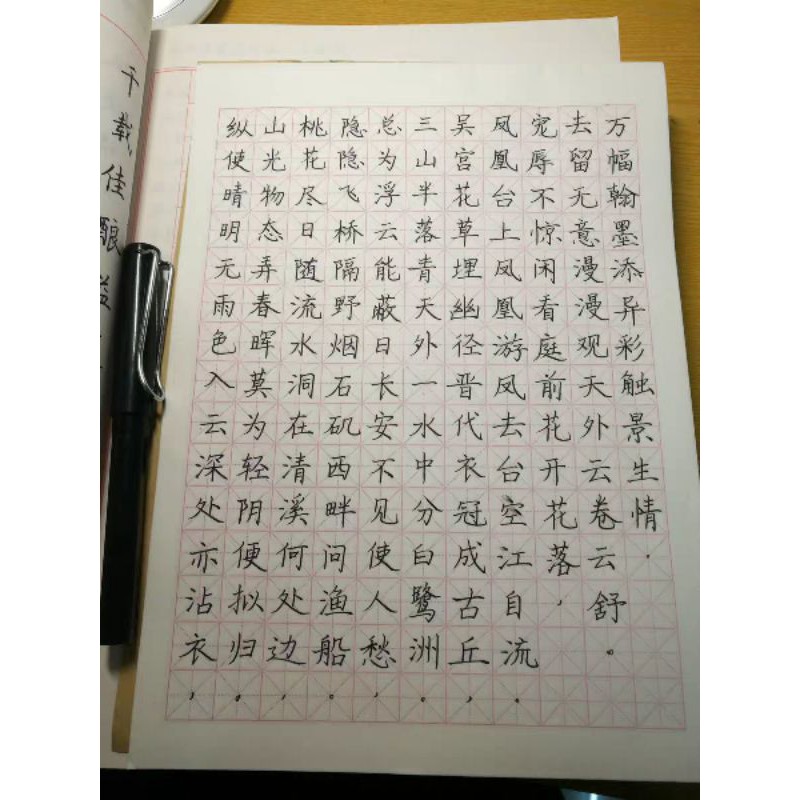 万幅翰墨添异彩触景生情.
去留无意漫漫观天外云卷云舒。
宠辱不惊闲看庭前花开花落，
凤凰台上凤凰游凤去台空江自流。
吴宫花草埋幽径晋代衣冠成古丘，
三山半落青天外一水中分白鹭洲。
总为浮云能蔽日长安不见使人愁，
隐隐飞桥隔野烟石矶西畔问渔船。
桃花尽日随流水洞在清溪何处边，
山光物态弄春晖莫为轻阴便拟归。
纵使晴明无雨色入云深处亦沾衣，
千载佳酿溢